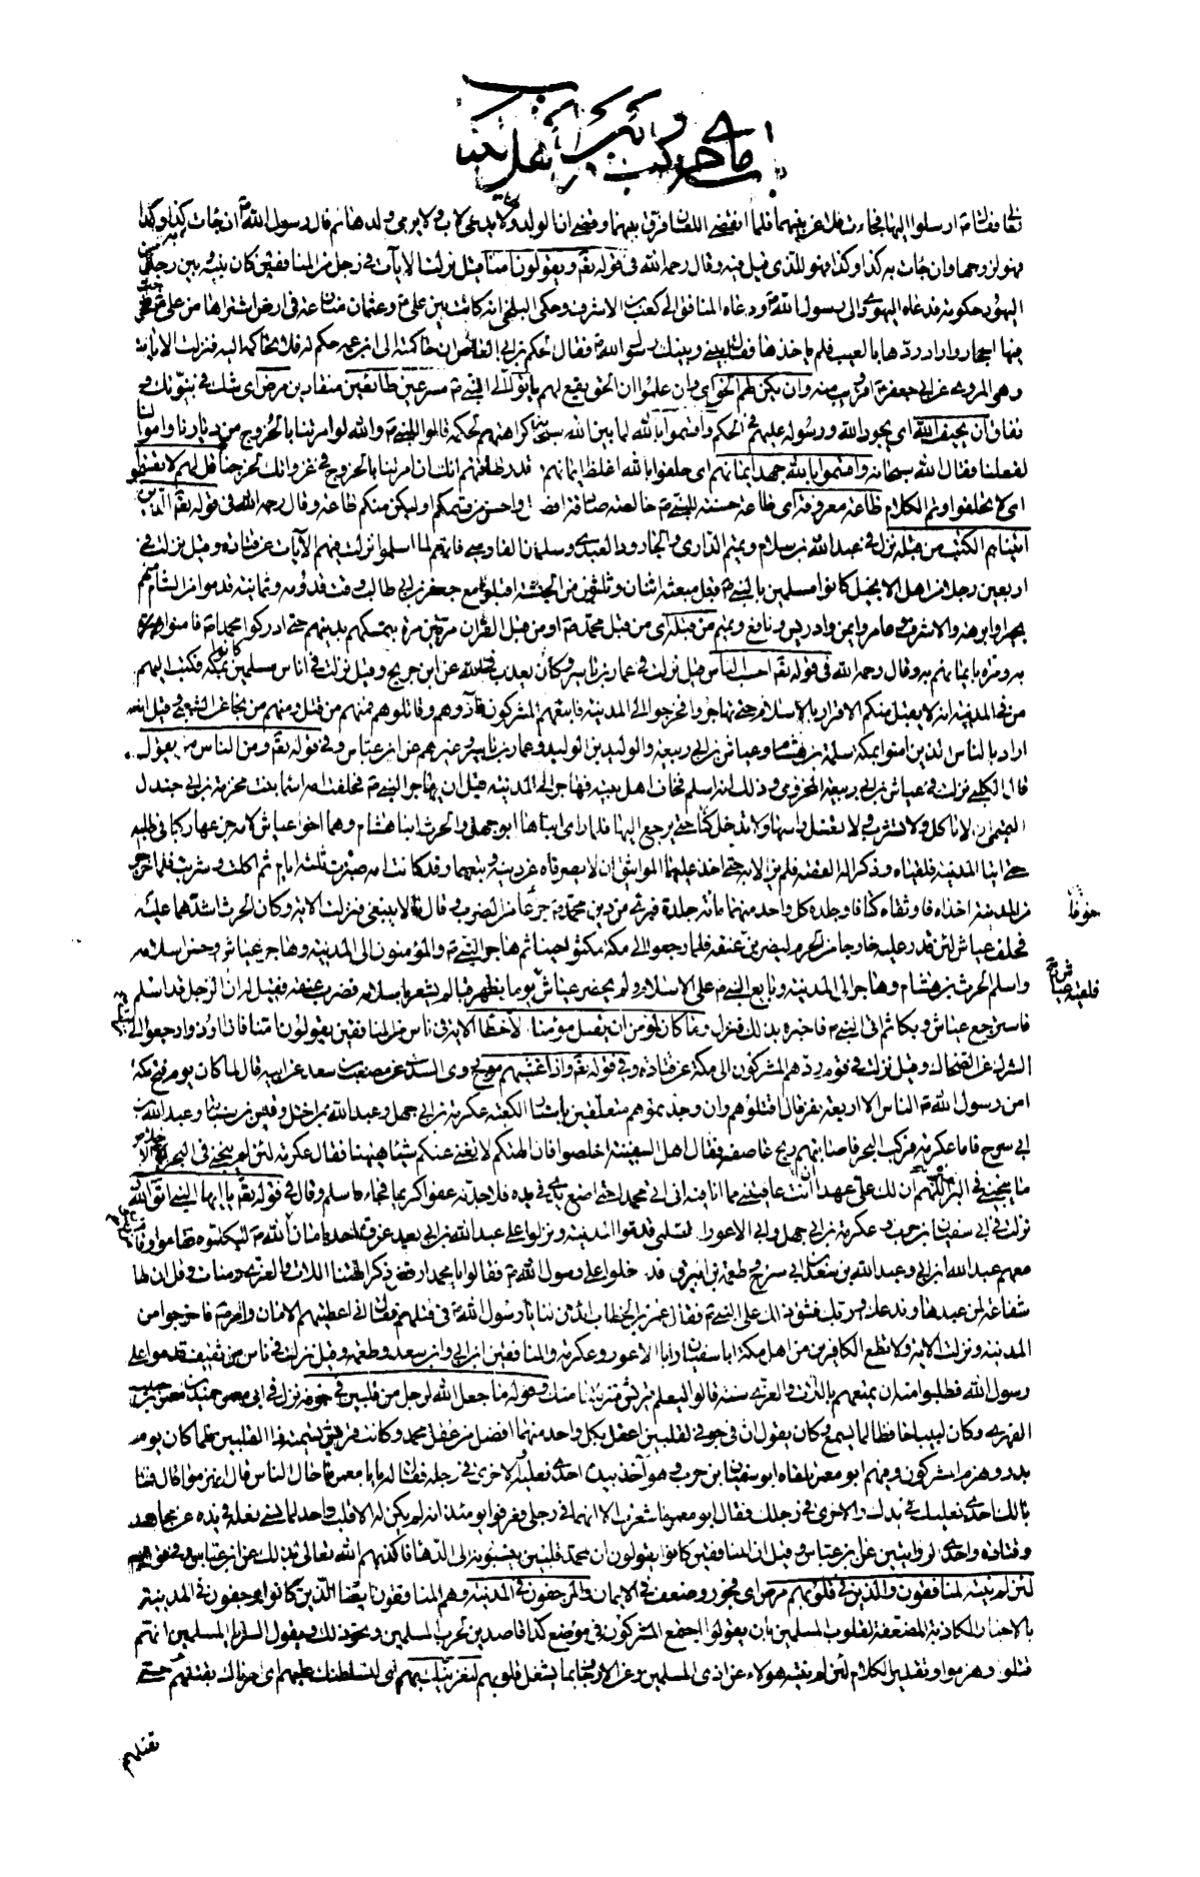 باب ما جرى بينه وبين أهل الكتاب
تعالى فقال ص ارسلوا اليها فجاءت فلاعن بينهما فلما انقضى اللعان فرق بينهما وقضى ان الولد لها ولا يدعى لاب ولا يرمى ولدها ثم قال رسول الله ص ان جاءت به كذا وكذا
فهو لزوجها وان جاءت به كذا وكذا فهو للذي قيل فيه وقال رحمه الله في قوله تعالى ويقولون آمنا قيل نزلت الآيات في رجل من المنافقين كان بينه وبين رجل من
اليهود حكومة فدعاه اليهودي الى رسول الله ص ودعاه المنافق الى كعب بن الاشرف وحكى البلخي انه كانت بين علي ع وعثمان منازعة في ارض اشتراها من علي ع فخرجت
فيها احجار واراد ردها بالعيب فلم يأخذها فقال بيني وبينك رسول الله ص فقال الحكم بن ابي العاص ان حاكمته الى ابن عمه حكم له فلا تحاكمه اليه فنزلت الآيات
وهي المروي عن ابي جعفر ع او قريب منه وان يكن لهم الحق اي وان علموا ان الحق يقع لهم يأتوا اليه الى النبي ص مسرعين طائعين منقادين مرض اي شك في نبوتك و
نفاق ان يحيف الله اي يجور الله ورسوله عليهم في الحكم واقسموا بالله لما بين الله سبحانه كراهتهم لحكمه قالوا للنبي ص والله لو امرتنا بالخروج من ديارنا واموالنا
لفعلنا فقال الله سبحانه واقسموا بالله جهد ايمانهم اي حلفوا بالله اغلظ ايمانهم انك ان امرتنا بالخروج في غزواتك لخرجنا قل لهم لا تقسموا
اي لا تحلفوا وتم الكلام طاعة معروفة اي طاعة حسنة للنبي ص خالصة صادقة افضل واحسن من قسمكم او ليكن منكم طاعة وقال رحمه الله في قوله تعالى الذين
آتيناهم الكتاب من قبله نزل في عبد الله بن سلام وتميم الداري والجارود العبدي وسلمان الفارسي فانهم لما اسلموا نزلت فيهم الآيات عن قتادة وقيل نزلت في
اربعين رجلا من اهل الانجيل كانوا مسلمين بالنبي ص قبل مبعثه اثنان وثلثون من الحبشة اقبلوا مع جعفر بن ابي طالب وقت قدومه وثمانية قدموا من الشام منهم
بحيرا وابرهة والاشرف وعامر وايمن وادريس ونافع وتميم من قبله اي من قبل محمد ص او من قبل القرآن مرتين مرة بتمسكهم بدينهم حتى ادركوا محمدا ص فآمنوا
به ومرة بايمانهم به وقال رحمه الله في قوله تعالى احسب الناس قيل نزلت في عمار بن ياسر وكان يعذب في الله عن ابن جريج وقيل نزلت في اناس مسلمين كانوا بمكة فكتب اليهم
من في المدينة انه لا يقبل منكم الاقرار بالاسلام حتى تهاجروا فخرجوا الى المدينة فاتبعهم المشركون فآذوهم وقاتلوهم فمنهم من قتل ومنهم من نجا عن الشعبي وقيل انه
اراد بالناس الذين آمنوا بمكة سلمة بن هشام وعياش بن ابي ربيعة والوليد بن الوليد وعمار بن ياسر وغيرهم عن ابن عباس وفي قوله تعالى ومن الناس من يقول
قال الكلبي نزلت في عياش بن ابي ربيعة المخزومي وذلك انه اسلم فخاف اهل بيته فهاجر الى المدينة قبل ان يهاجر النبي ص فحلفت امه اسماء بنت مخرمة بن ابي جندل
التميمي ان لا تأكل ولا تشرب ولا تغسل رأسها ولا تدخل كنا حتى يرجع اليها فلما رأى ابناها ابو جهل والحرث ابنا هشام وهما اخوا عياش لامه جزعها ركبا في طلبه
حتى اتيا المدينة فلقياه وذكرا له القصة فلم يزالا به حتى اخذ عليهما المواثيق ان لا يصرفاه عن دينه وتبعهما وقد كانت امه صبرت ثلثة ايام ثم اكلت وشربت فلما خرجوا
من المدينة اخذاه فاوثقاه كتافا وجلده كل واحد منهما مائة جلدة فبرئ من دين محمد ص جزعا من الضرب وقال ما لا ينبغي فنزلت الآية وكان الحرث اشدهما عليه
فحلف عياش لئن قدر عليه خارجا من الحرم ليضربن عنقه فلما رجعوا الى مكة مكثوا حينا ثم هاجر النبي ص والمؤمنون الى المدينة وهاجر عياش وحسن اسلامه
واسلم الحرث بن هشام وهاجر الى المدينة وبايع النبي ص على الاسلام ولم يحضر عياش يوما بظهر قبا لم يشعر باسلامه فضرب عنقه فقيل له ان الرجل قد اسلم
فاسترجع عياش وبكى ثم اتى النبي ص فاخبره بذلك فنزل وما كان لمؤمن ان يقتل مؤمنا الا خطأ الآية في ناس من المنافقين يقولون آمنا فاذا اوذوا رجعوا الى
الشرك عن الضحاك وقيل نزلت في قوم ردهم المشركون الى مكة عن قتادة وفي قوله تعالى واذا غشيهم موج روى السدي عن مصعب بن سعد عن ابيه قال لما كان يوم فتح مكة
امن رسول الله ص الناس الا اربعة نفر قال اقتلوهم وان وجدتموهم متعلقين باستار الكعبة عكرمة بن ابي جهل وعبد الله بن اخطل وقيس بن صبابة وعبد الله بن
ابي سرح فاما عكرمة فركب البحر فاصابتهم ريح عاصفة فقال اهل السفينة اخلصوا فان آلهتكم لا تغني عنكم شيئا هيهنا فقال عكرمة لئن لم ينجني في البحر الا الاخلاص
ما ينجيني في البر غيره اللهم ان لك علي عهدا ان انت عافيتني مما انا فيه اني آتي محمدا حتى اضع يدي في يده فلاجدنه عفوا كريما فجاء فاسلم وقال في قوله تعالى يا ايها النبي اتق الله
نزلت في ابي سفيان بن حرب وعكرمة بن ابي جهل وابي الاعور السلمي قدموا المدينة ونزلوا على عبد الله بن ابي بعد غزوة احد بامان من رسول الله ص ليكلموه فقاموا وقام
معهم عبد الله بن ابي وعبد الله بن سعد بن ابي سرح وطعمة بن ابيرق فدخلوا على رسول الله ص فقالوا يا محمد ارفض ذكر آلهتنا اللات والعزى ومنات وقل ان لها
شفاعة لمن عبدها وندعك وربك فشق ذلك على النبي ص فقال عمر بن الخطاب ائذن لنا يا رسول الله ص في قتلهم فقال اني اعطيتهم الامان وامر ص فاخرجوا من
المدينة ونزلت الآية ولا تطع الكافرين من اهل مكة ابا سفيان وابا الاعور وعكرمة والمنافقين ابن ابي وابن سعد وطعمة وقيل نزلت في ناس من ثقيف قدموا على
رسول الله فطلبوا منه ان يمتعهم باللات والعزى سنة قالوا ليعلم قريش منزلتنا منك وقوله ما جعل الله لرجل من قلبين في جوفه نزل في ابي معمر حميد بن معمر بن حبيب
الفهري وكان لبيبا حافظا لما يسمع وكان يقول ان في جوفي لقلبين اعقل بكل واحد منهما افضل من عقل محمد وكانت قريش تسميه ذا القلبين فلما كان يوم
بدر وهزم المشركون وفيهم ابو معمر تلقاه ابو سفيان بن حرب وهو آخذ بيده احدى نعليه والاخرى في رجله فقال له يا با معمر ما حال الناس قال انهزموا قال فما
بالك احدى نعليك في يدك والاخرى في رجلك فقال ابو معمر ما شعرت الا انهما في رجلي فعرفوا يومئذ انه لم يكن له الا قلب واحد لما نسي نعله في يده عن مجاهد
وقتادة واحدى الروايتين عن ابن عباس وقيل ان المنافقين كانوا يقولون ان لمحمد قلبين ينسبونه الى الدهاء فاكذبهم الله تعالى بذلك عن ابن عباس وفي قوله
لئن لم ينته المنافقون والذين في قلوبهم مرض اي فجور وضعف في الايمان والمرجفون في المدينة وهم المنافقون ايضا الذين كانوا يرجفون في المدينة
بالاخبار الكاذبة المضعفة لقلوب المسلمين بان يقولوا اجتمع المشركون في موضع كذا قاصدين لحرب المسلمين ونحو ذلك ويقول لسرايا المسلمين انهم
قتلوا وهزموا وتقدير الكلام لئن لم ينته هؤلاء عن اذى المسلمين وعن الارجاف بما يشغل قلوبهم لنغرينك بهم اي لنسلطنك عليهم اي امرناك بقتلهم حتى
تقتلهم